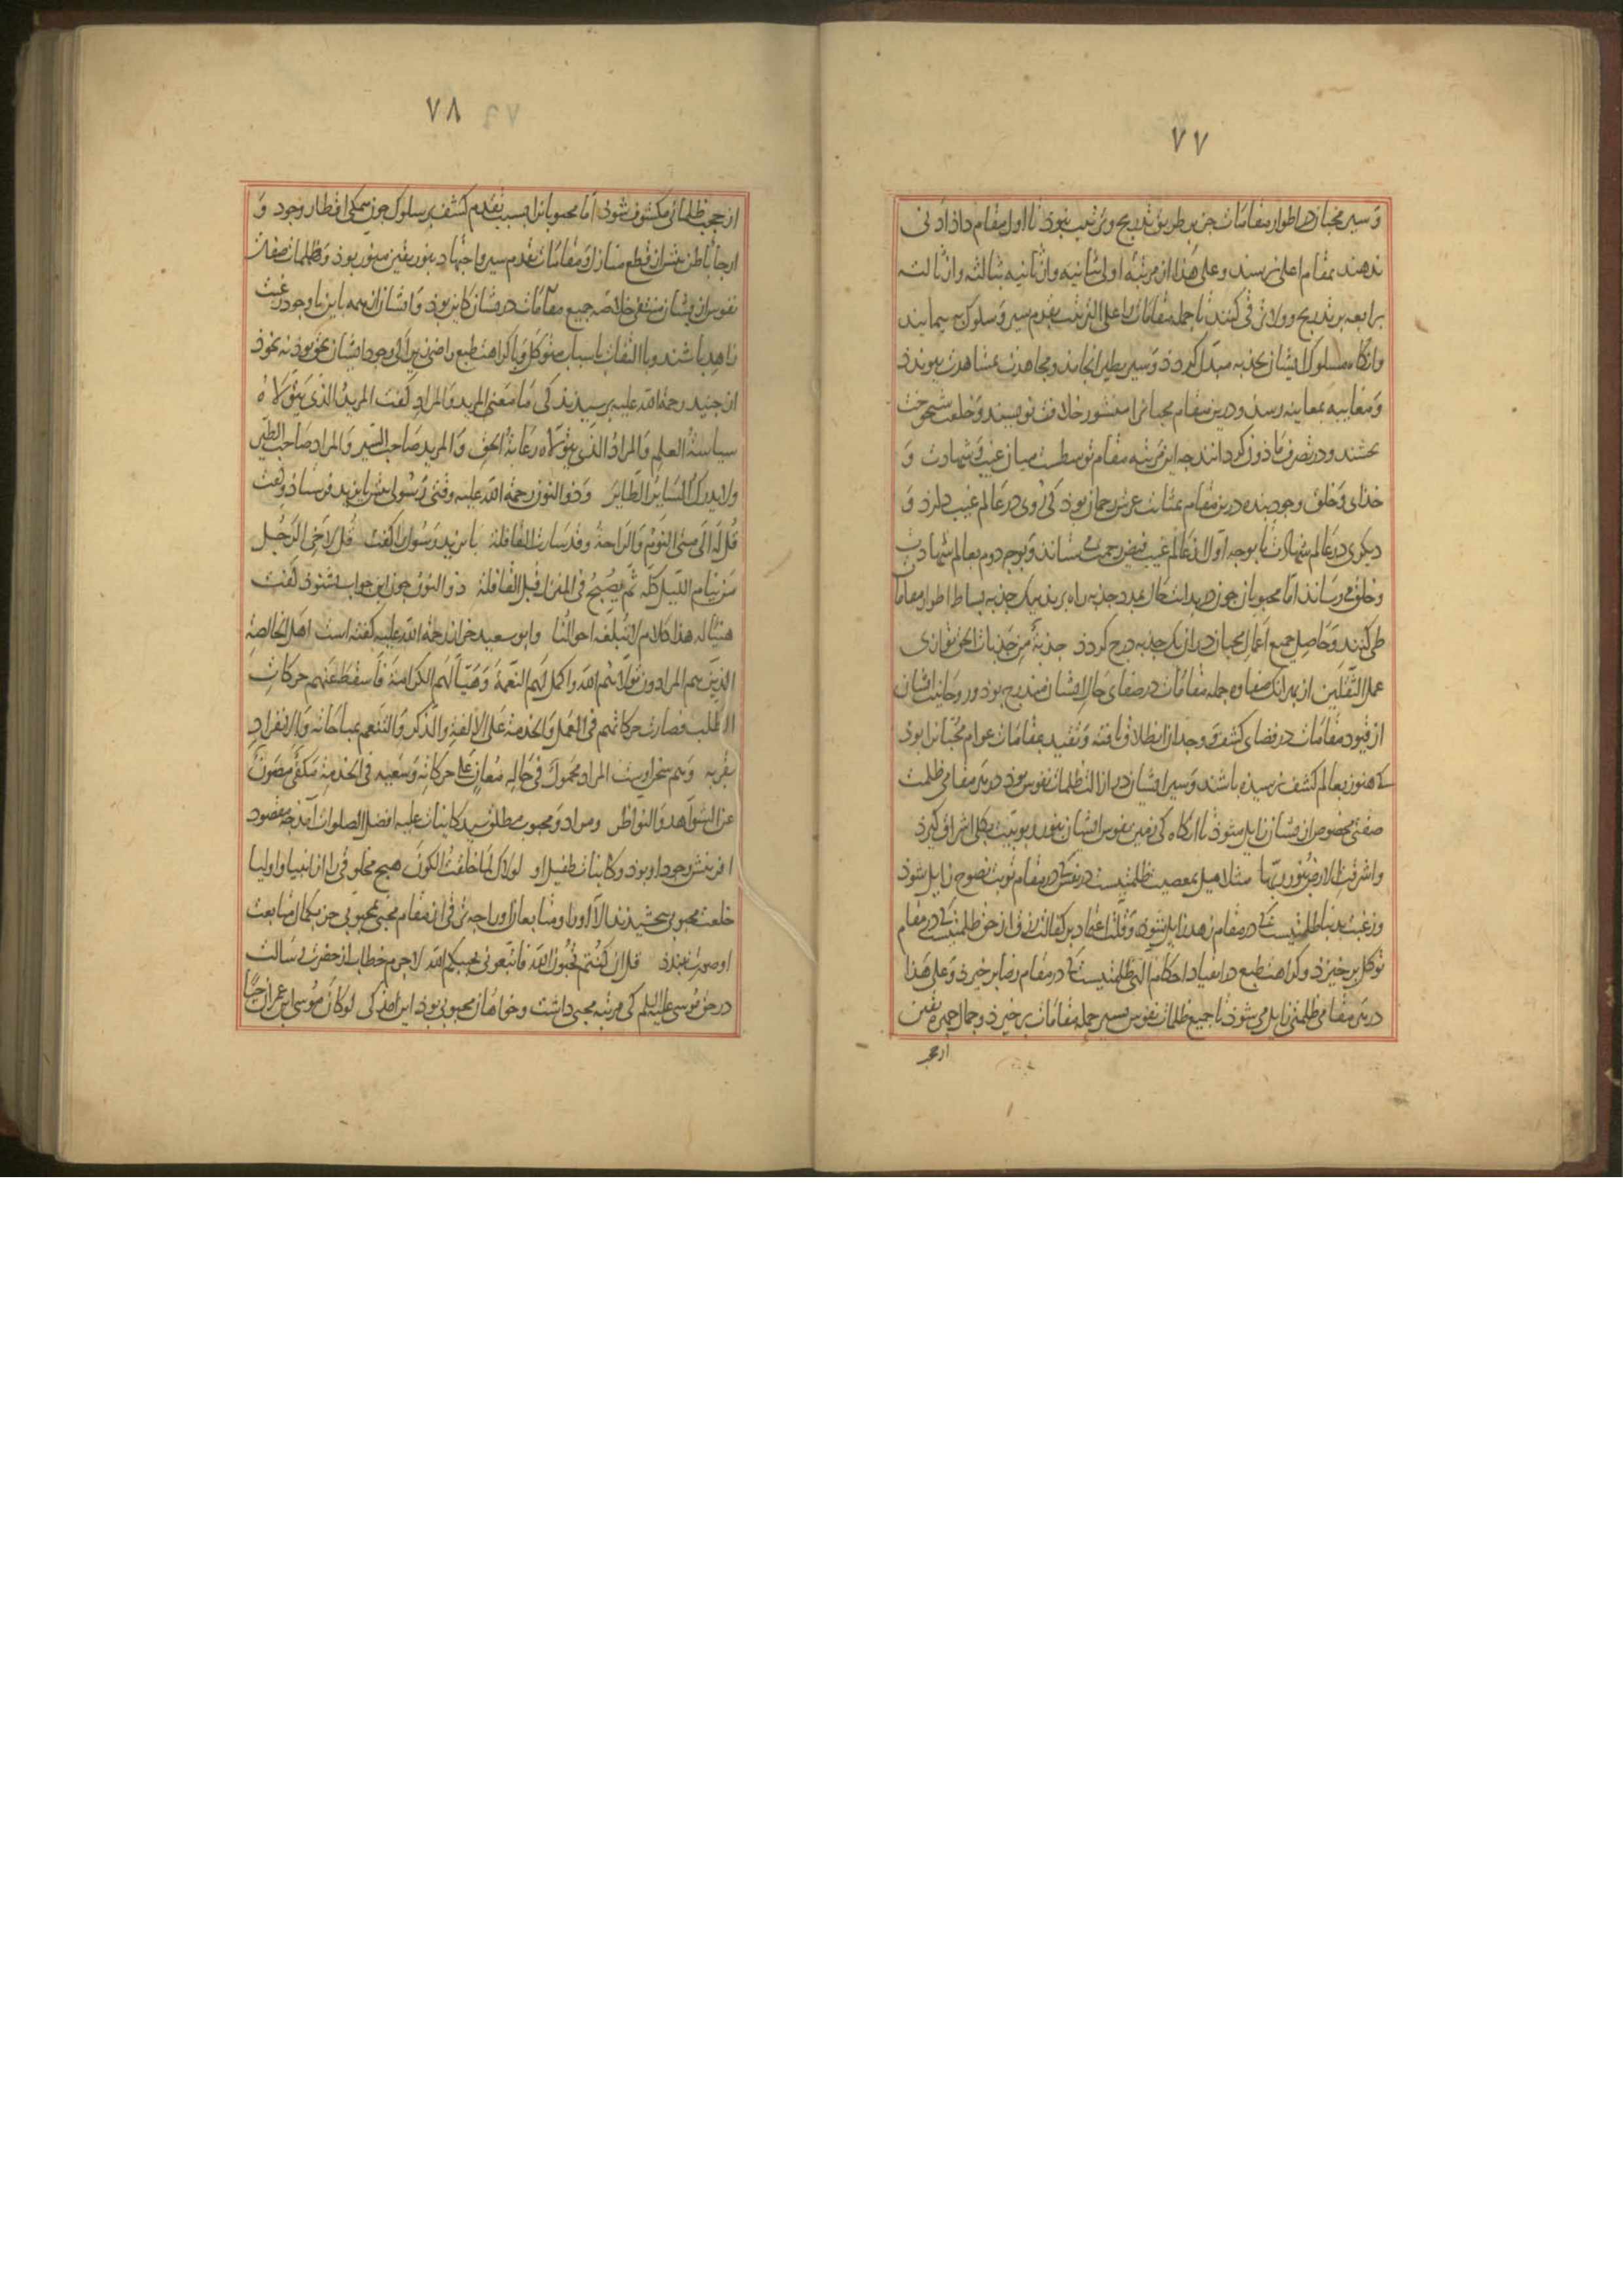 ٧٧
و سیر محبان در اطوار مقامات جز بر طریق تدریج و ترتیب نبوذ تا اول مقام داد ادنی
ندهند بمقام اعلی نرسند و علی هذا از مرتبهٔ اولی بثانیه و از ثانیه بثالثه و از ثالثه
برابعه بر تدریج و ولا ترقی کنند تا جمله مقامات را علی الترتیب بقدم سیر و سلوک بپیمایند
وانکاه سلوک ایشان بجذبه مبدل کردد و سیر بطیر انجامد و مجاهدت بمشاهدت بپیوندد
و مغایبه بمعاینه رسد و درین مقام محبانرا منشور خلافت نویسند و خلعت شیخوخت
بخشند و در تصرف ماذون کردانند چه این مرتبه مقام توسطست میان غیب و شهادت و
خذای و خلق وجود بنده درین مقام بمثابت عرش رحمان بوذ کی روی در عالم غیب دارد و
دیکری در عالم شهادت تا بوجه اول از عالم غیب فیض رحمت می ستاند و بوجه دوم بعالم شهادت
و خلق می رساند اما محبوبان چون در بدایت حال بمدد جذبه راه برند بیک جذبه بساط اطوار مقامات
طی کنند و حاصل جمیع اعمال محبان در ان یک جذبه درج کردد جذبة من جذبات الحق توازی
عمل الثقلین از بهر انک صفاوه جمله مقامات در صفای حال ایشان مندرج بود و روحانیت ایشان
از قیود مقامات در فضای کشف و وجدان انطلاق یافته و تقید بمقامات عوام محبانرا بوذ
که هنوز بعالم کشف نرسیده باشند و سیر ایشان در ازالت ظلمات نفوس بود در هر مقامی ظلمت
صفتی مخصوص از ایشان زایل میشود تا انکاه کی زمین نفوس ایشان بنور ربوبیت بکلی اشراق کیرد
واشرقت الارض بنور ربها مثلا میل بمعصیت ظلمتیست در نفس که در مقام توبت نصوح زایل شود
و رغبت بدنیا ظلمتیست که در مقام زهد زایل شود و قلت اعتماد بر کفالت رزق از حق ظلمتیست که در مقام
توکل برخیزد و کراهت طبع در انقیاد احکام الهی ظلمتیست که در مقام رضا برخیزد و علی هذا
در هر مقامی ظلمتی زایل می شود تا جمیع ظلمات نفوس بسیر جمله مقامات برخیزد و جمال چهره یقین
از حجب
٧٨
از حجب ظلمانی مکشوف شود اما محبوبانرا بسبب تقدم کشف بر سلوک چون همکی اقطار وجود و
ارجا باطن پیش از قطع منازل و مقامات بقدم سیر و اجتهاد بنور یقین منور بود و ظلمات صفات
نفوس از ایشان منتفی خلاصه جمیع مقامات در ایشان کاین بود و ایشان از همه باین با وجود رغبت
زاهد باشند و با التفات باسباب متوکل و با کراهت طبع راضی زیرا کی وجود ایشان بحق بوذ نه بخوذ
از جنید رحمة الله علیه پرسیدند کی ما معنی المرید والمراد کفت المرید الذی یتولاه
سیاسة العلم والمراد الذی یتولاه رعایة الحق والمرید صاحب السیر والمراد صاحب الطیر
ولا یدرک السایر الطایر و ذو النون رحمة الله علیه وقتی رسولی پیش بایزید فرستاد و کفت
قل له الی متی النوم والراحة وقد سارت القافلة بایزید رسول را کفت قل لاخی الرجل
من ینام اللیل کله ثم یصبح فی المنزل قبل القافلة ذو النون چون این جواب بشنود کفت
هنیئا له هذا کلام لا تبلغه احوالنا و ابو سعید خراز رحمة الله علیه کفته است اهل الخالصة
الذین هم المرادون تولاهم الله واکمل لهم النعمة وهیّأ لهم الکرامة فاسقط عنهم حرکات
الطلب فصارت حرکاتهم فی العمل والخدمة علی الالفة والذکر والتنعم بمناجاته والانفراد
بقربه و هم سخن اوست المراد محمول فی حاله معان علی حرکاته وسعیه فی الخدمة مکفی مصون
عن الشواهد والنواظر و مراد و محبوب مطلق سید کاینات علیه افضل الصلوات آمد چه مقصود
افرینش وجود او بود و کاینات طفیل او لولاک لما خلقت الکون هیچ مخلوقی را از انبیا و اولیا
خلعت محبوبی نبخشیدند الا او را و متابعان او را چه ترقی از مقام محبی بمحبوبی جز بکمال متابعت
او صورت نبندد قل ان کنتم تحبون الله فاتبعونی یحببکم الله لاجرم خطاب از حضرت رسالت
در حق موسی علیه السلم کی مرتبه محبی داشت و خواهان محبوبی بود این امد کی لو کان موسی ابن عمران حیا